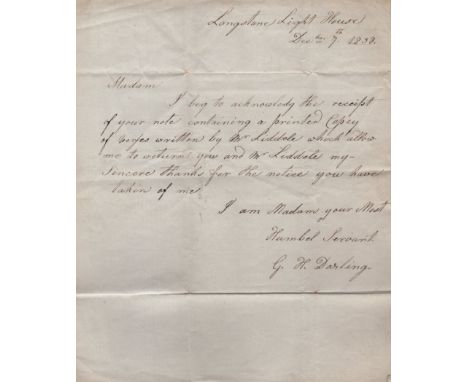 Longstone Light House
Decbr 7th 1838.
Madam
I beg to acknowledg the receipt
of your note containing a printed Copey
of verses written by Mr Liddele which allow
me to return you and Mr Liddele my
Sencere thanks for the notice you have
taken of me
I am Madam your Most
Humbel Servant
G. H. Darling